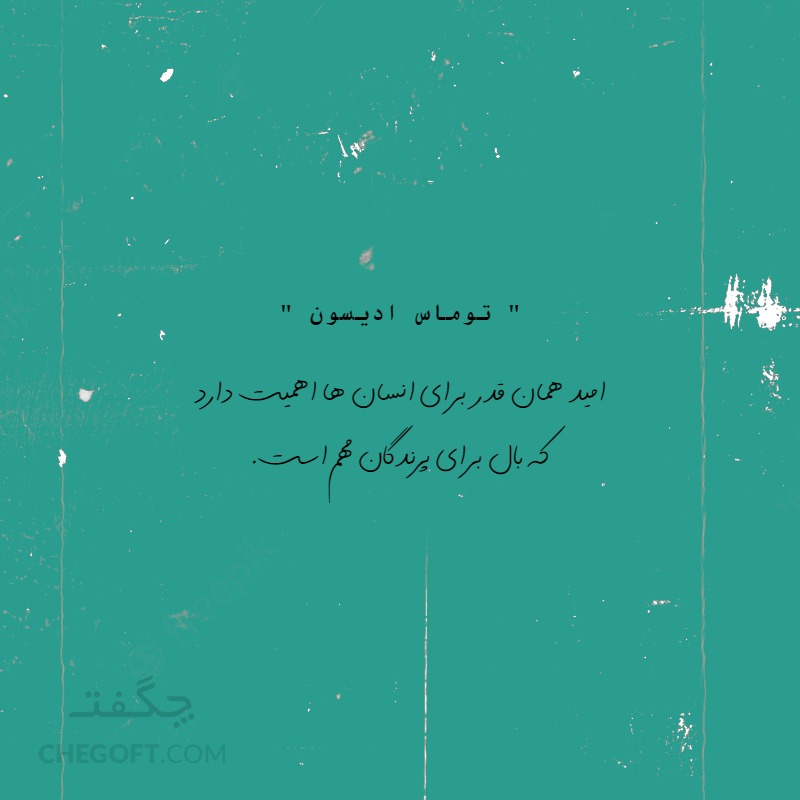 " توماس ادیسون "
امید همان قدر برای انسان ها اهمیت دارد
که بال برای پرندگان مهم است.
freepik
چگفت
CHEGOFT.COM